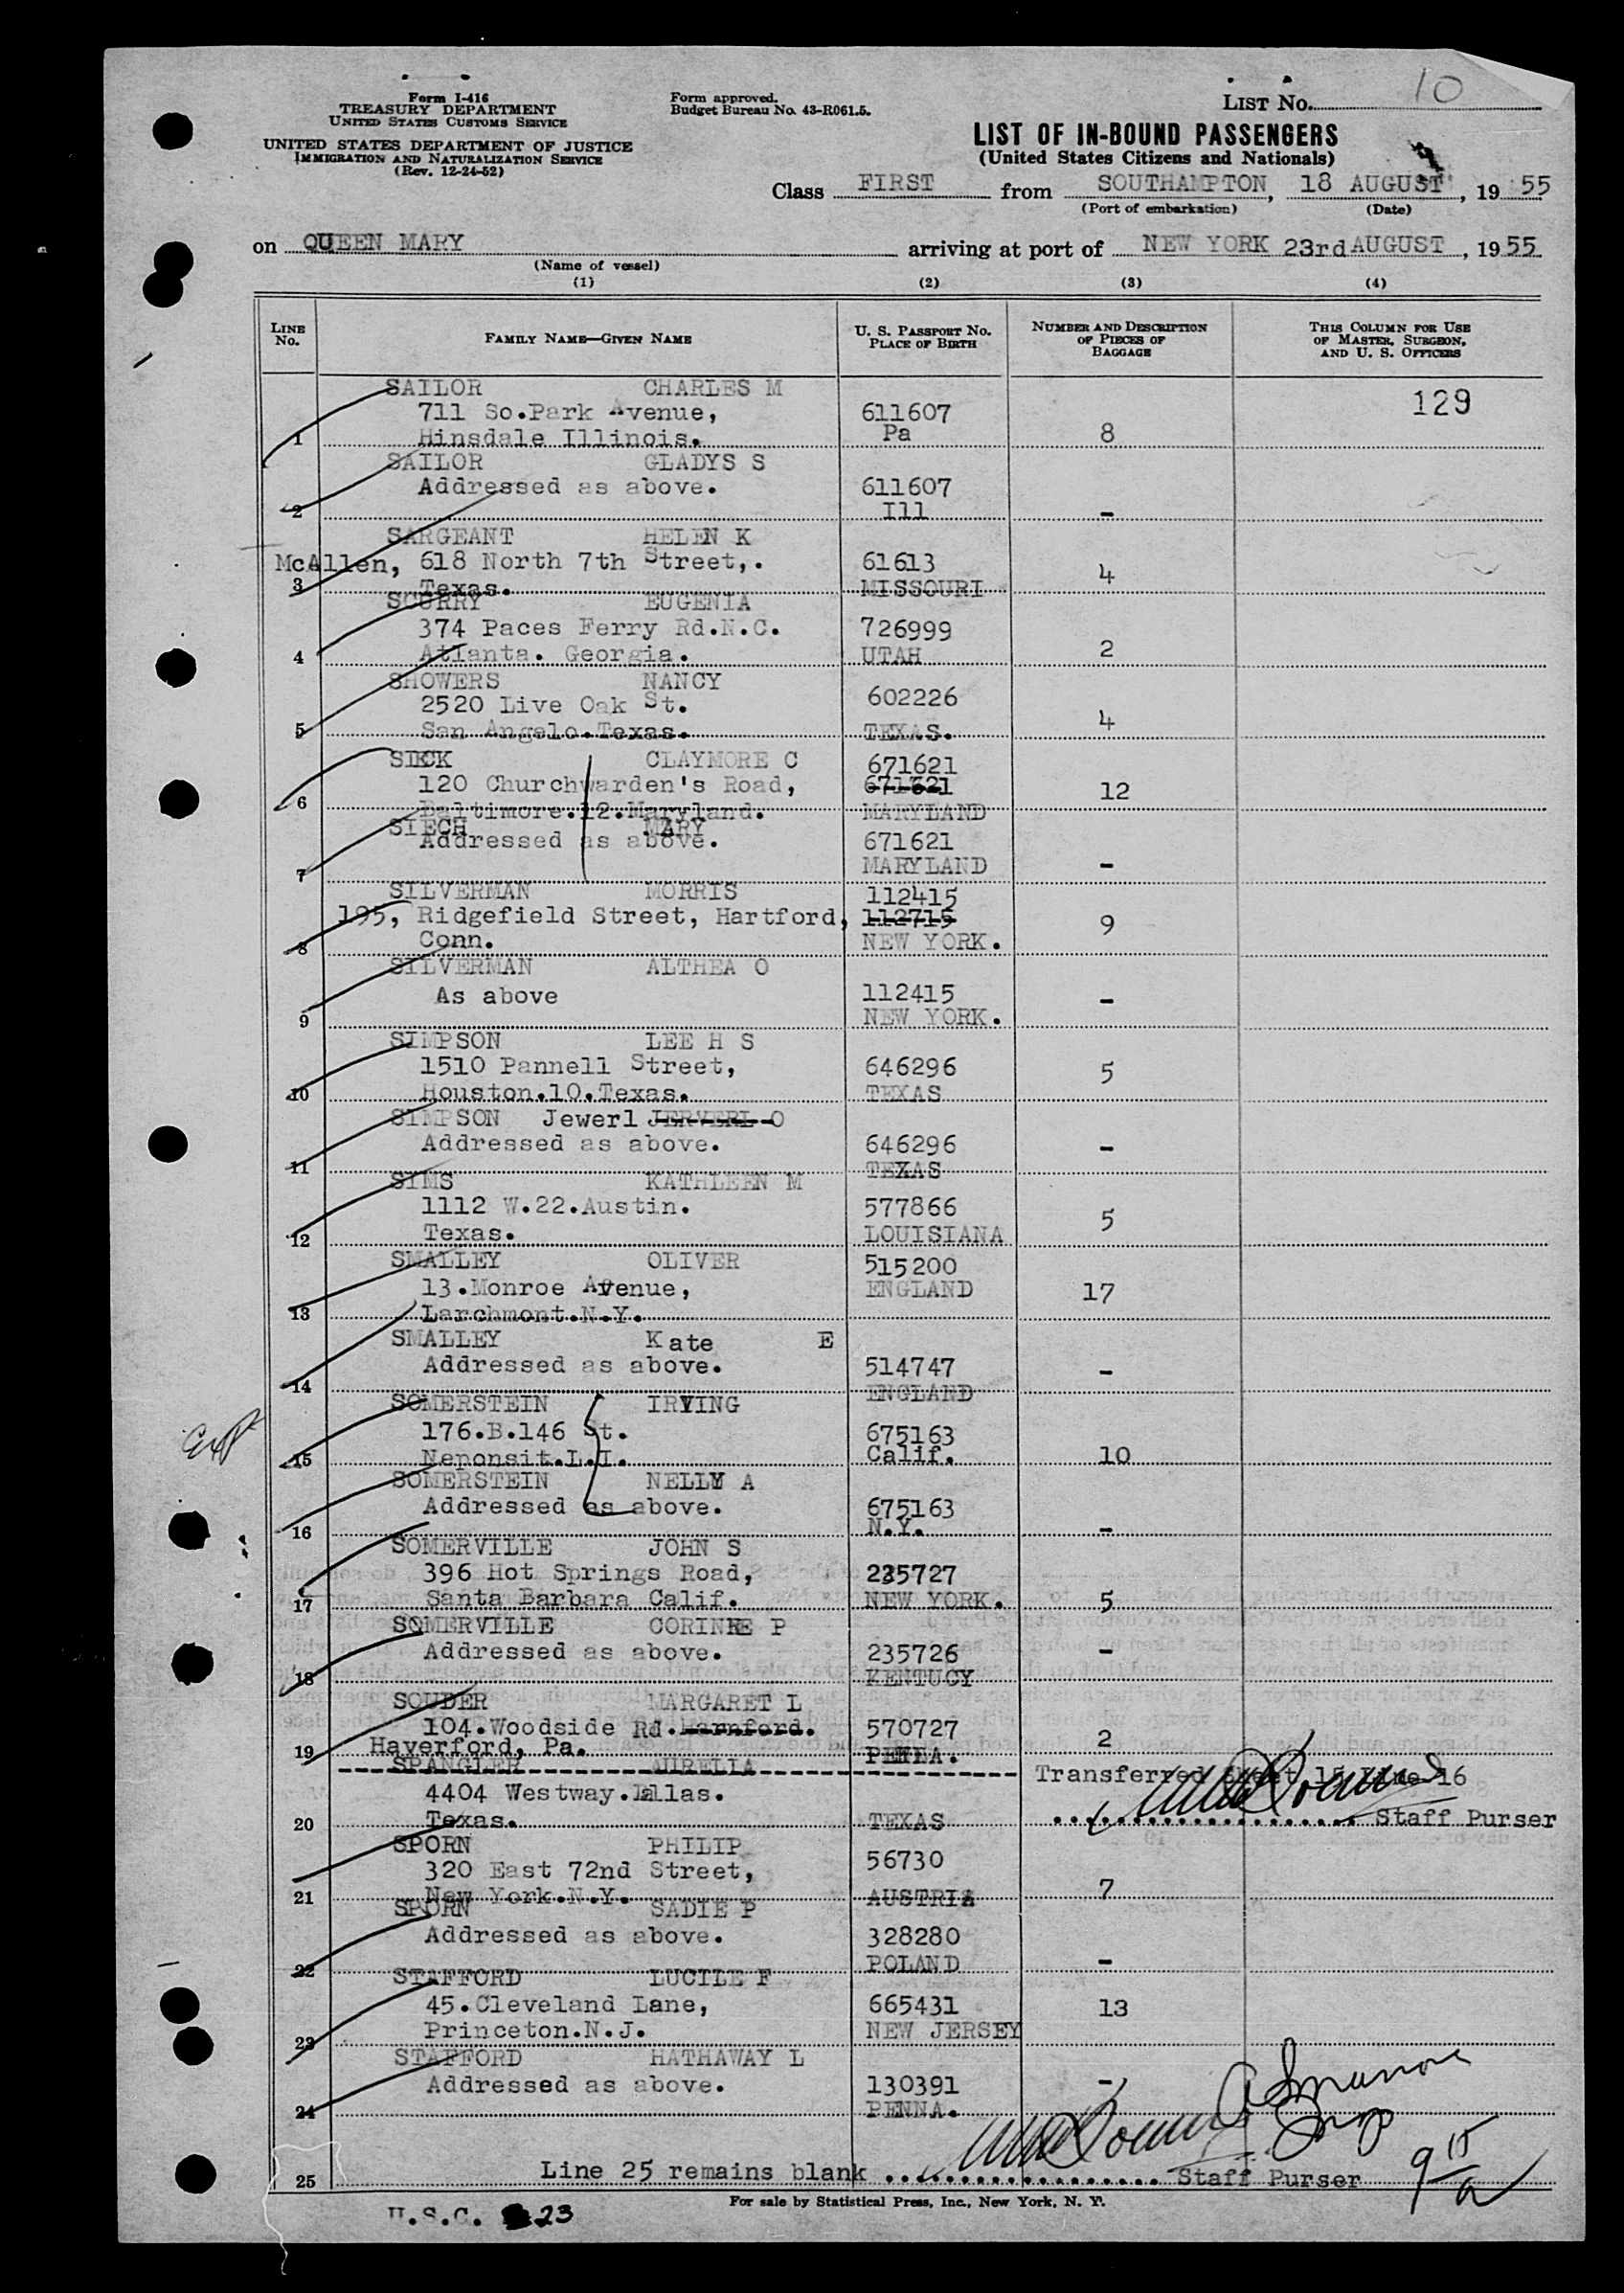 Form I-416
TREASURY DEPARTMENT
UNITED STATES CUSTOMS SERVICE
UNITED STATES DEPARTMENT OF JUSTICE
IMMIGRATION AND NATURALIZATION SERVICE
(Rev. 12-24-52)
Form approved.
Budget Bureau No. 43-R061.5.
LIST NO. 10
LIST OF IN-BOUND PASSENGERS
(United States Citizens and Nationals)
Class FIRST from SOUTHAMPTON, 18 AUGUST, 19 55
(Port of embarkation) (Date)
on QUEEN MARY arriving at port of NEW YORK 23rd AUGUST, 1955
(Name of vessel)
(1) (2) (3) (4)
LINE NO.
FAMILY NAME—GIVEN NAME
U. S. PASSPORT NO.
PLACE OF BIRTH
NUMBER AND DESCRIPTION
OF PIECES OF
BAGGAGE
THIS COLUMN FOR USE
OF MASTER, SURGEON,
AND U. S. OFFICERS
129
SAILOR CHARLES M
711 So.Park Avenue, 611607
1 Hinsdale Illinois. Pa 8
SAILOR GLADYS S
Addressed as above. 611607
2 Ill -
SARGEANT HELEN K
McAllen, 618 North 7th Street,. 61613
3 Texas. MISSOURI 4
SCURRY EUGENIA
374 Paces Ferry Rd.N.C. 726999
4 Atlanta. Georgia. UTAH 2
SHOWERS NANCY
2520 Live Oak St. 602226
5 San Angelo.Texas. TEXAS. 4
SIECK CLAYMORE C 671621
120 Churchwarden's Road, 671321
6 Baltimore.12.Maryland. MARYLAND 12
SIECH MARY
Addressed as above. 671621
7 MARYLAND -
SILVERMAN MORRIS 112415
195, Ridgefield Street, Hartford, 112715
8 Conn. NEW YORK. 9
SILVERMAN ALTHEA O
As above 112415
9 NEW YORK. -
SIMPSON LEE H S
1510 Pannell Street, 646296
10 Houston.10.Texas. TEXAS 5
SIMPSON Jewerl JERVERL O
Addressed as above. 646296
11 TEXAS -
SIMS KATHLEEN M
1112 W.22.Austin. 577866
12 Texas. LOUISIANA 5
SMALLEY OLIVER 515200
13.Monroe Avenue, ENGLAND
13 Larchmont.N.Y. 17
SMALLEY Kate E
Addressed as above. 514747
14 ENGLAND -
SOMERSTEIN IRVING
176.B.146 St. 675163
15 Neponsit.L.I. Calif. 10
SOMERSTEIN NELLY A
Addressed as above. 675163
16 N.Y. -
SOMERVILLE JOHN S
396 Hot Springs Road, 235727
17 Santa Barbara Calif. NEW YORK. 5
SOMERVILLE CORINNE P
Addressed as above. 235726
18 KENTUCY -
SOUDER MARGARET L
104.Woodside Rd. 570727
19 Haverford, Pa. PENNA. 2
SPANGLER AURELIA
Transferred Sheet 15 Line 16
4404 Westway.Dallas.
20 Texas. TEXAS Staff Purser
SPORN PHILIP
320 East 72nd Street, 56730
21 New York.N.Y. AUSTRIA 7
SPORN SADIE P
Addressed as above. 328280
22 POLAND -
STAFFORD LUCILE F
45.Cleveland Lane, 665431
Princeton.N.J. NEW JERSEY 13
23
STAFFORD HATHAWAY L
Addressed as above. 130391 -
24 PENNA.
25 Line 25 remains blank Staff Purser
For sale by Statistical Press, Inc., New York, N. Y.
U.S.C. 23